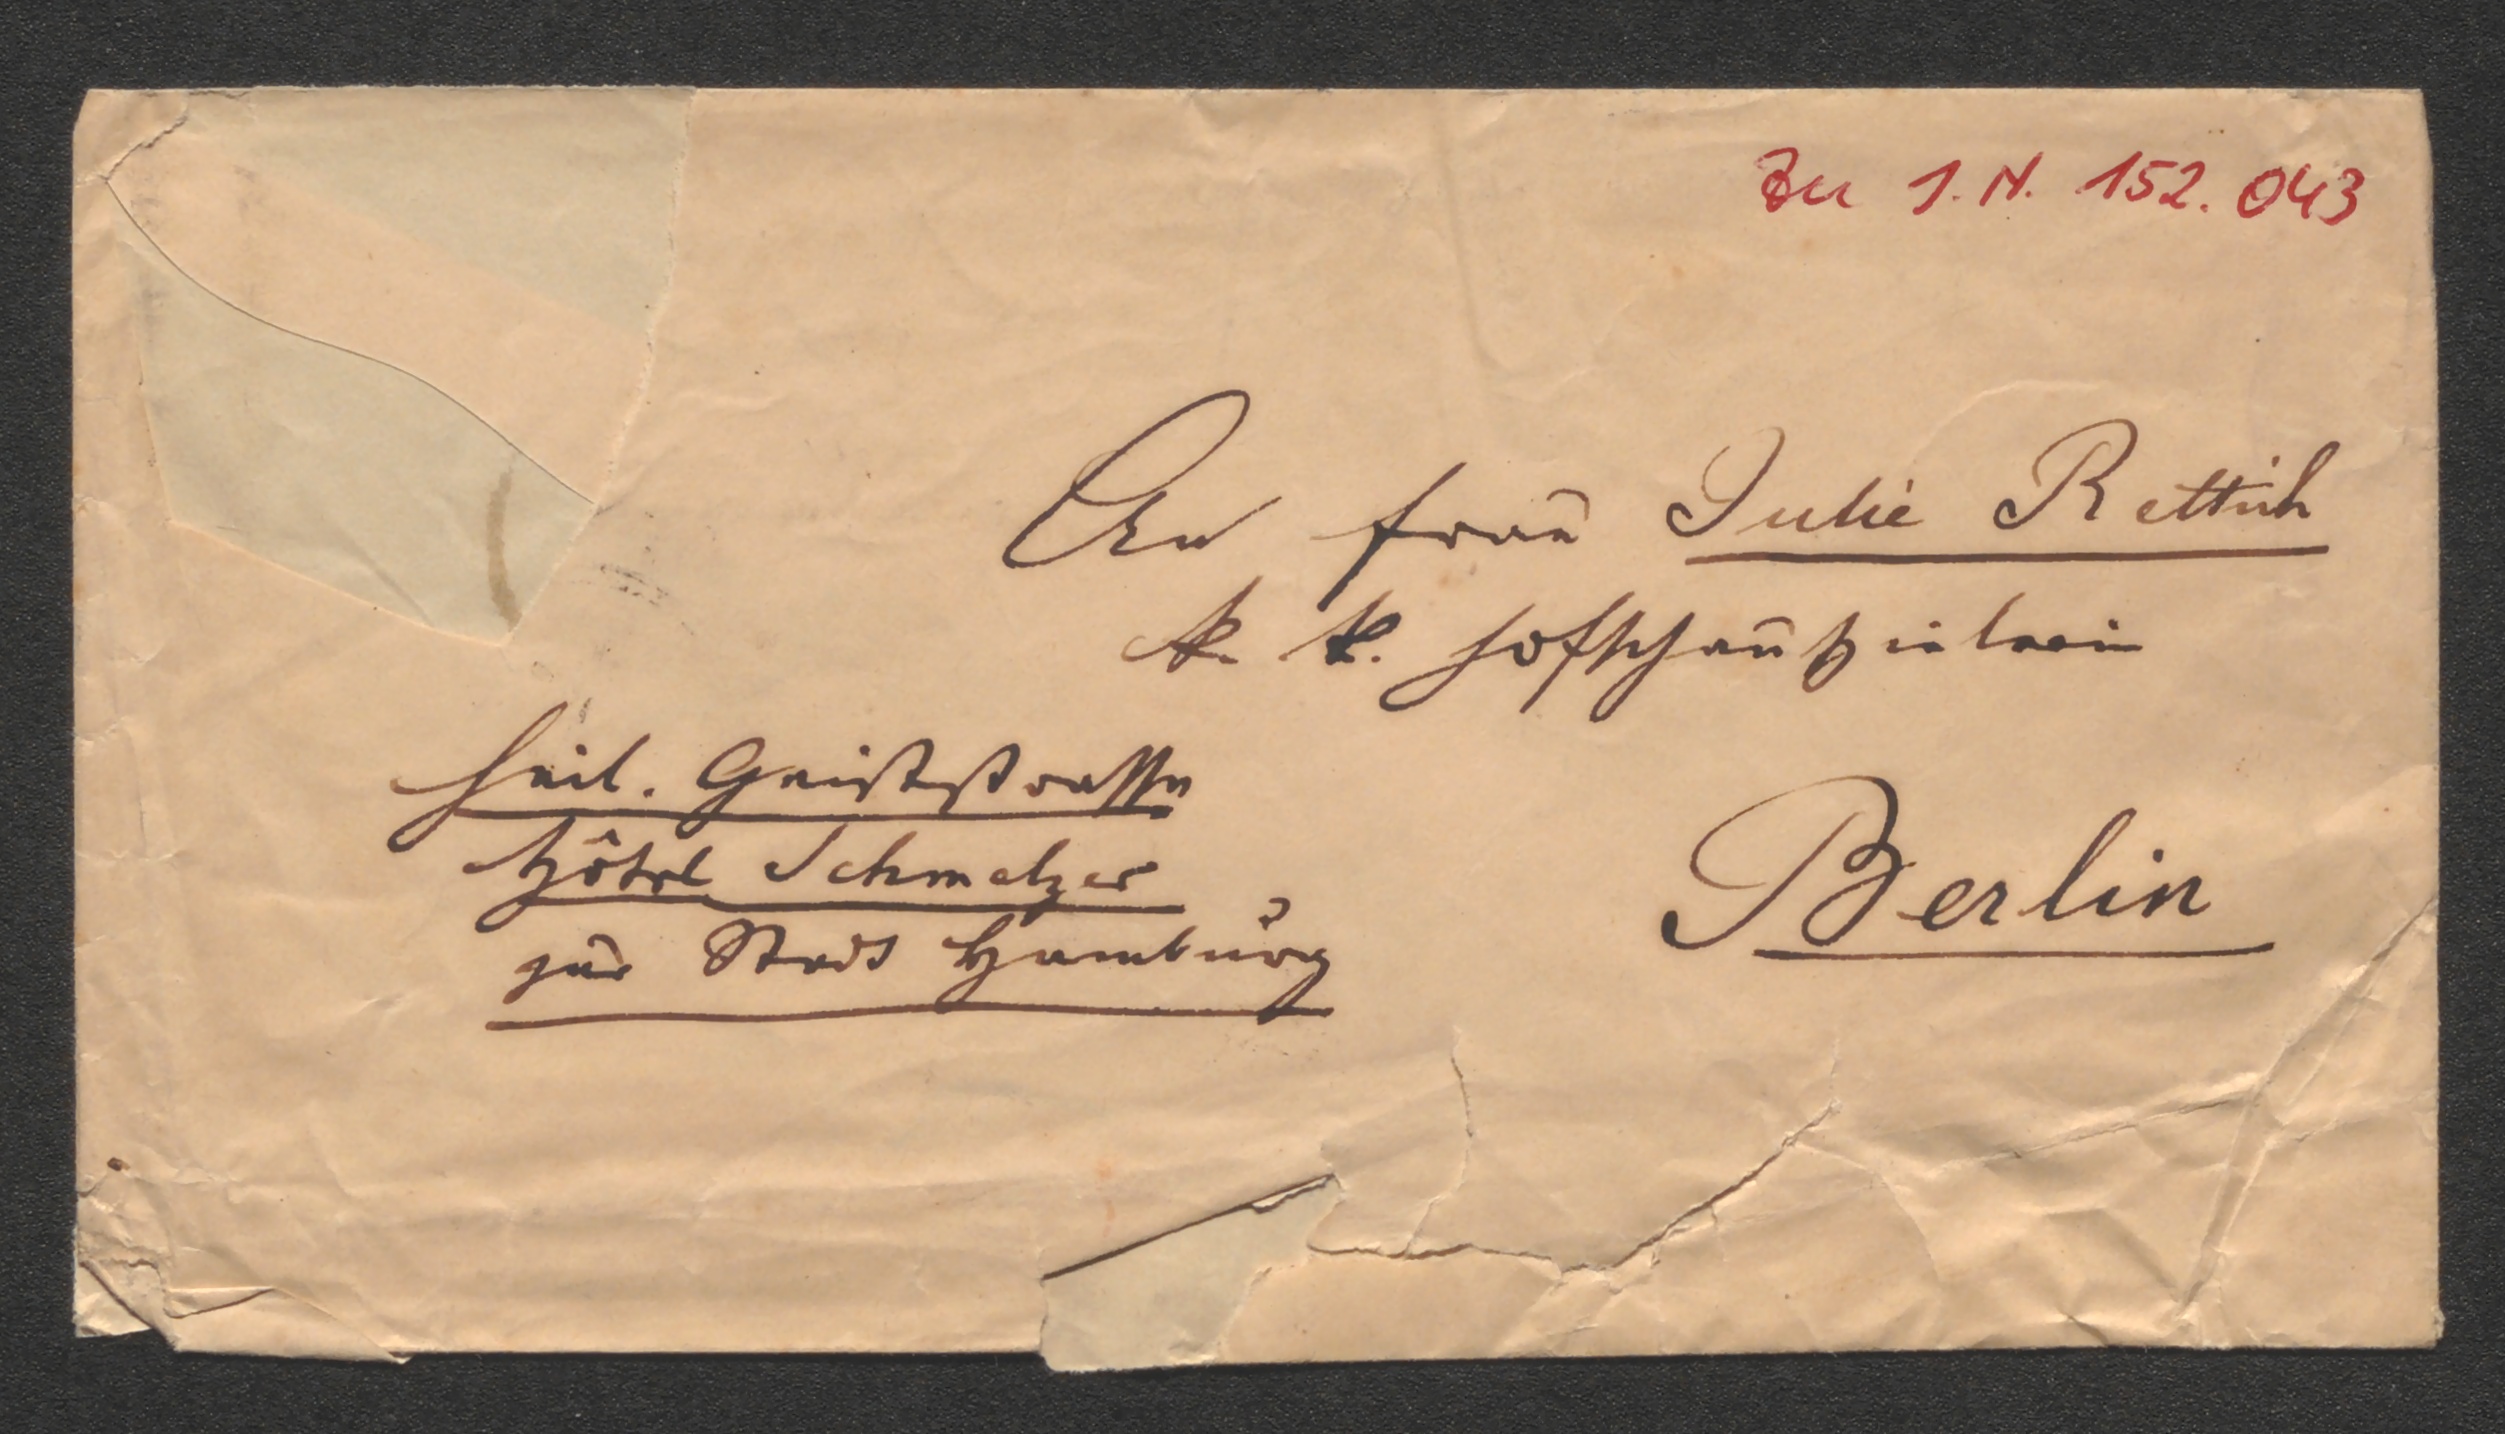 Zu I.N. 152.043
An Frau Julie Rettich
k. k. Hofschauspielerin
Heil. Geiststrasse
Hôtel Schmelzer
zur Stadt Hamburg
Berlin